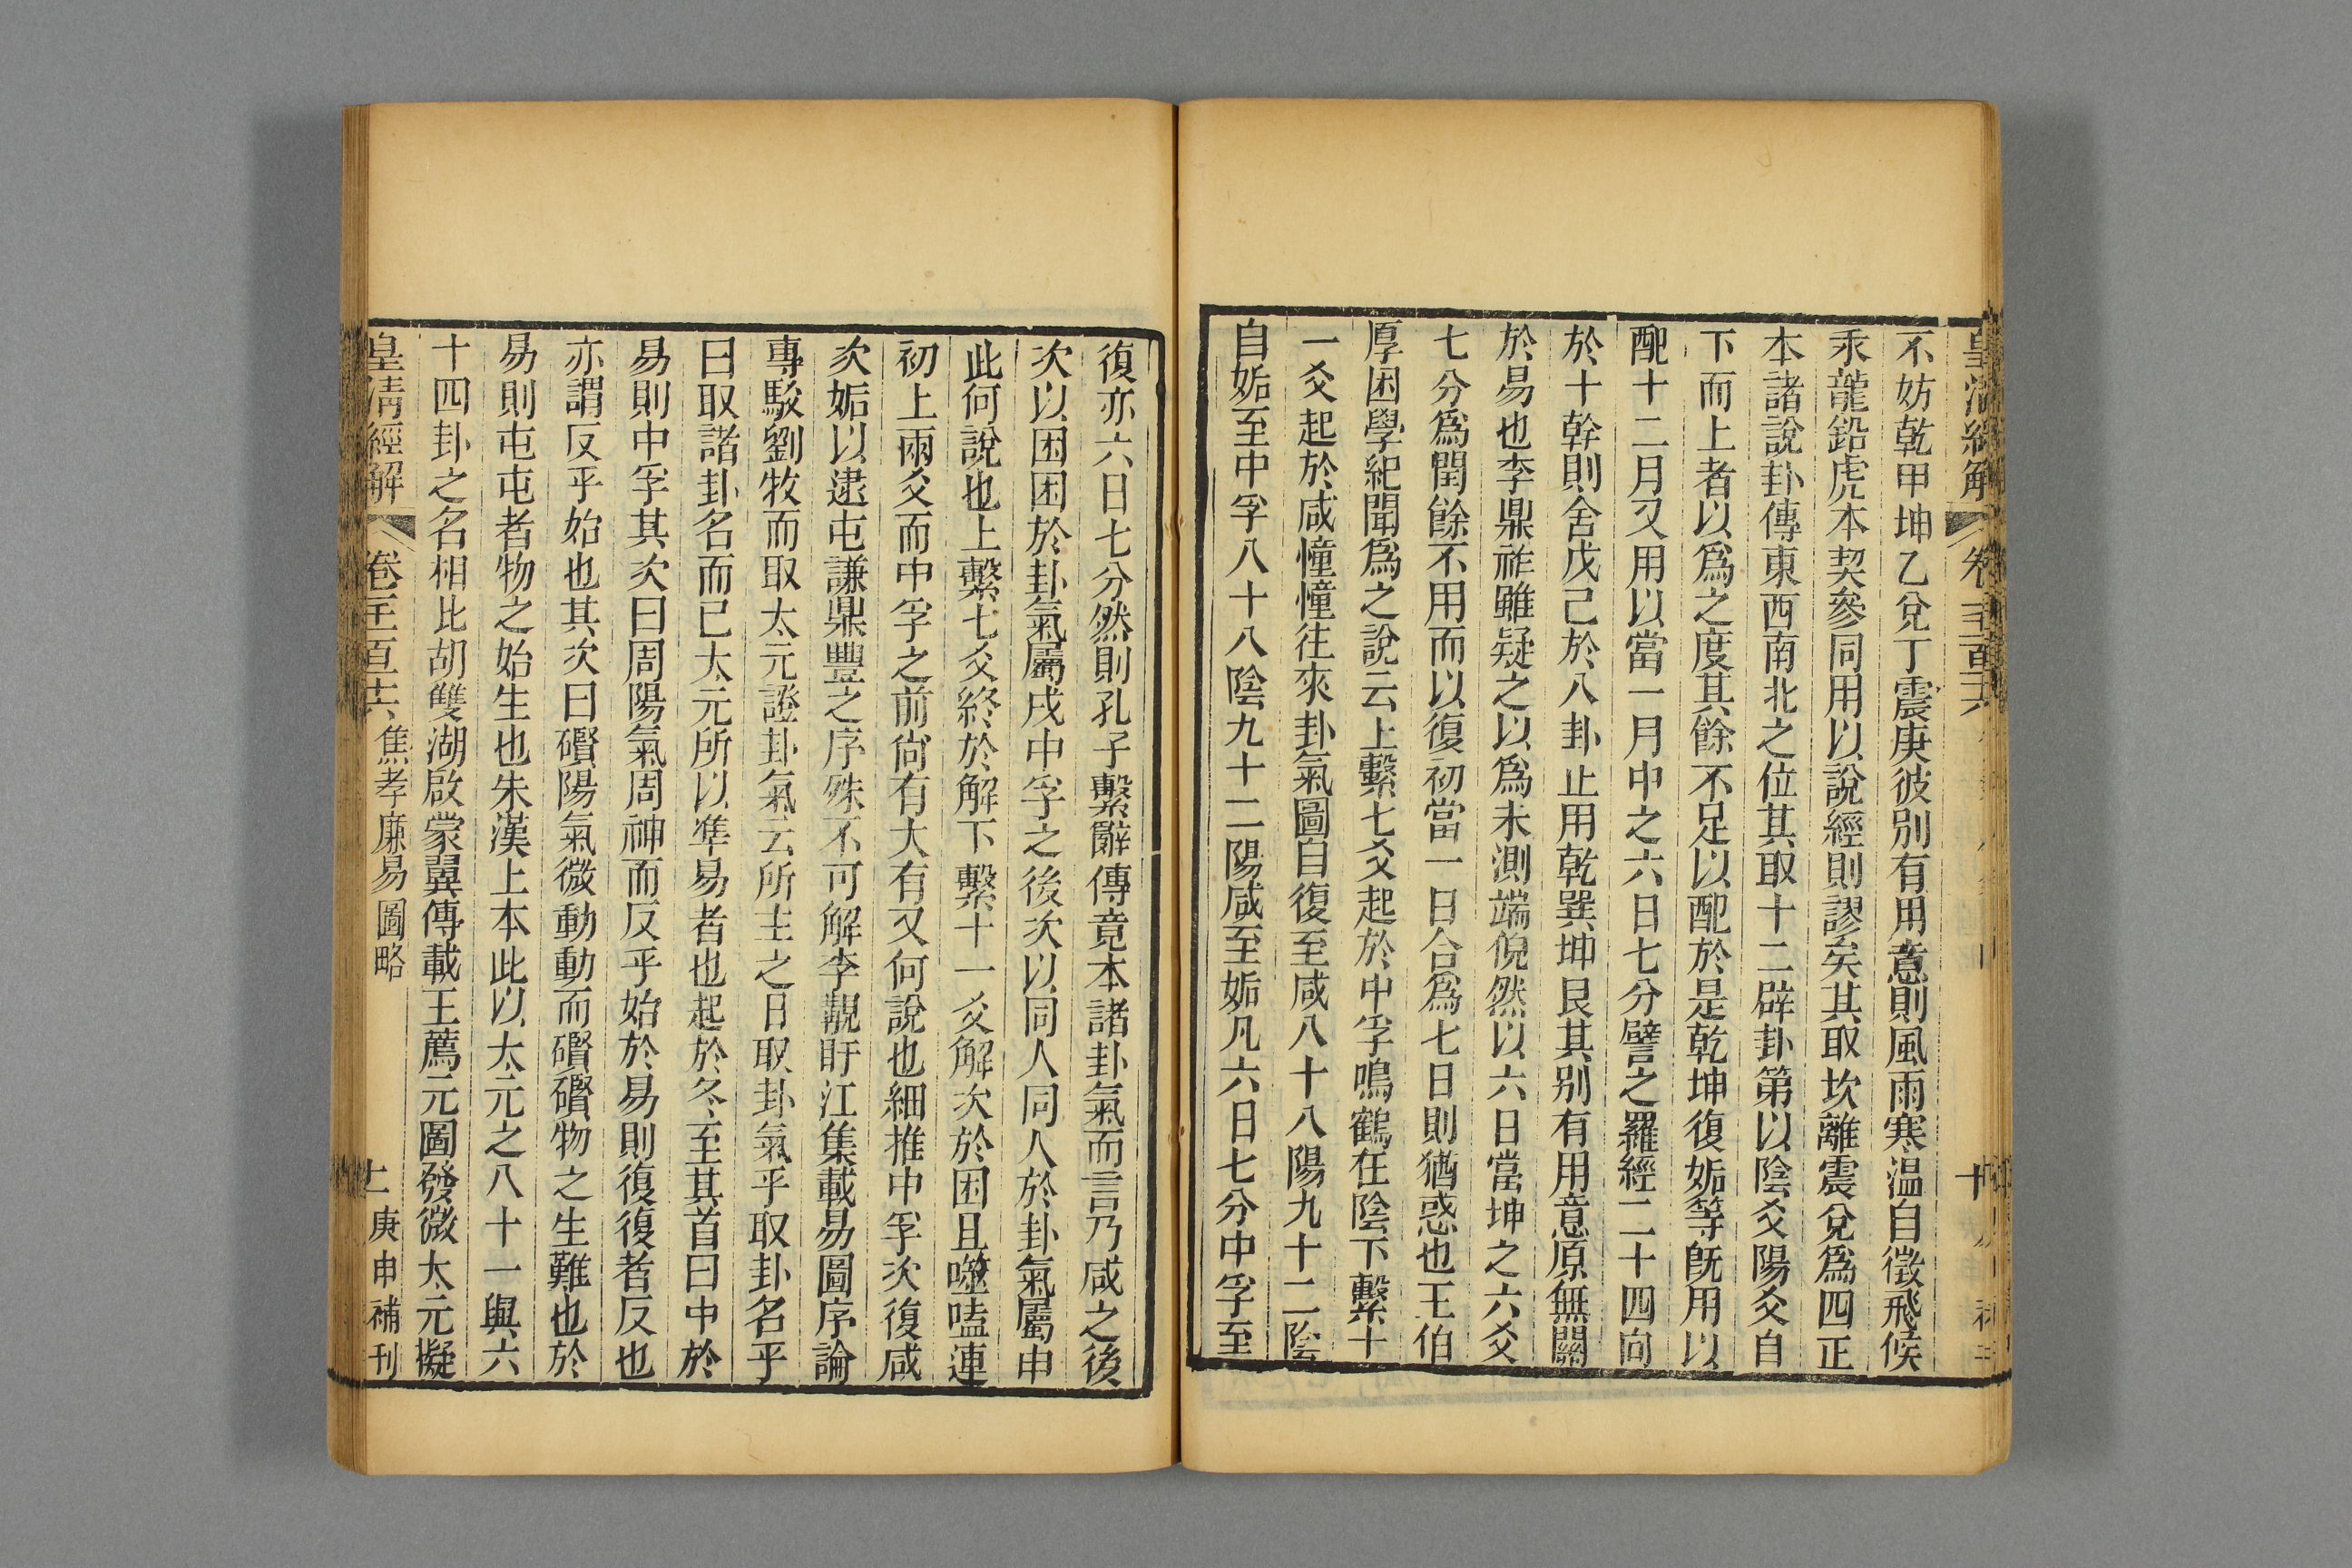 皇清經解
卷
十
不妨乾甲坤乙兌丁震庚彼別有用意則風雨寒温自徵飛候
汞龍鉛虎本契參同用以說經則謬矣其取坎離震兌爲四正
本諸說卦傳東西南北之位其取十二辟卦第以陰爻陽爻自
下而上者以爲之度其餘不足以配於是乾坤復姤等旣用以
配十二月又用以當一月中之六日七分譬之羅經二十四向
於十幹則舍戊己於八卦止用乾巽坤艮其别有用意原無關
於易也李鼎祚雖疑之以爲未測端倪然以六日當坤之六爻
七分爲閏餘不用而以復初當一日合爲七日則猶惑也王伯
厚困學紀聞爲之說云上繫七爻起於中孚鳴鶴在陰下繫十
一爻起於咸憧憧往來卦氣圖自復至咸八十八陽九十二陰
自姤至中孚八十八陰九十二陽咸至姤凡六日七分中孚至
復亦六日七分然則孔子繫辭傳竟本諸卦氣而言乃咸之後
次以困困於卦氣屬戌中孚之後次以同人同人於卦氣屬申
此何說也上繫七爻終於解下繫十一爻解次於困且噬嗑連
初上兩爻而中孚之前尙有大有又何說也細推中孚次復咸
次姤以逮屯謙鼎豐之序殊不可解李覯盱江集載易圖序論
專駁劉牧而取太元證卦氣云所主之日取卦氣乎取卦名乎
曰取諸卦名而已太元所以準易者也起於冬至其首曰中於
易則中孚其次曰周陽氣周神而反乎始於易則復復者反也
亦謂反乎始也其次曰礥陽氣微動動而礥礥物之生難也於
易則屯屯者物之始生也朱漢上本此以太元之八十一與六
十四卦之名相比胡雙湖啟蒙翼傳載王薦元圖發微太元擬
皇清經解
卷
焦孝廉易圖略
庚申補刊